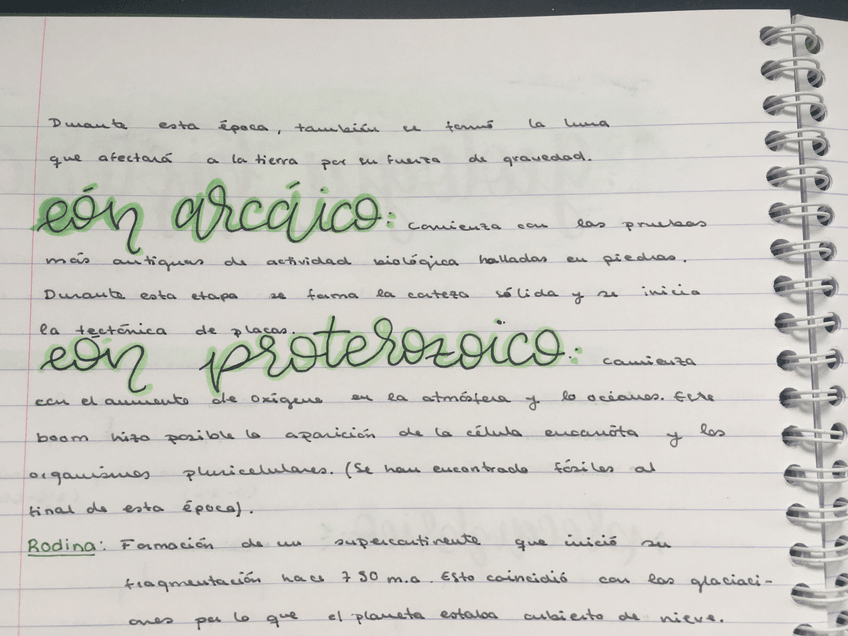 Durante esta época, también se formó la luna
que afectará a la tierra por su fuerza de gravedad.
eón arcáico: comienza con las pruebas
más antiguas de actividad biológica halladas en piedras.
Durante esta etapa se forma la corteza sólida y se inicia
la tectónica de placas.
eón proterozoico: comienza
con el aumento de oxígeno en la atmósfera y lo océanos. Este
boom hizo posible la aparición de la célula eucariota y los
organismos pluricelulares. (Se han encontrado fósiles al
final de esta época).
Rodina: Formación de un supercontinente que inició su
fragmentación hace 750 m.a. Esto coincidió con las glaciaci-
ones por lo que el planeta estaba cubierto de nieve.